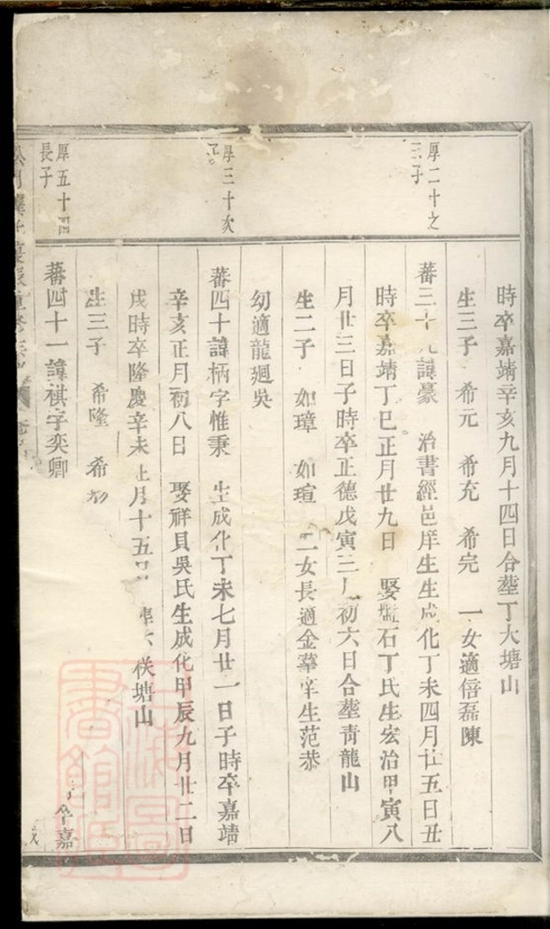 厚二十之
三子
時卒嘉靖辛亥九月十四日合塟丁大塘山
生三子 希元 希充 希完 一女適倍磊陳
蕃三十九諱豪 治書經邑庠生生成化丁未四月廿五日丑
時卒嘉靖丁巳正月廿九日 娶塩石丁氏生宏治甲寅八
月廿三日子時卒正德戊寅三月初六日合塟青龍山
生二子 如璋 如瑄 二女長適金華庠生范恭
幼適龍廻吳
厚三十次
子
蕃四十諱柄字惟秉 生成化丁未七月廿一日子時卒嘉靖
辛亥正月初八日 娶祥貝吳氏生成化甲辰九月廿二日
戌時卒隆慶辛未 月十五 塘山
生三子 希隆 希
厚五十四
長子
蕃四十一諱祺字奕卿 卒嘉